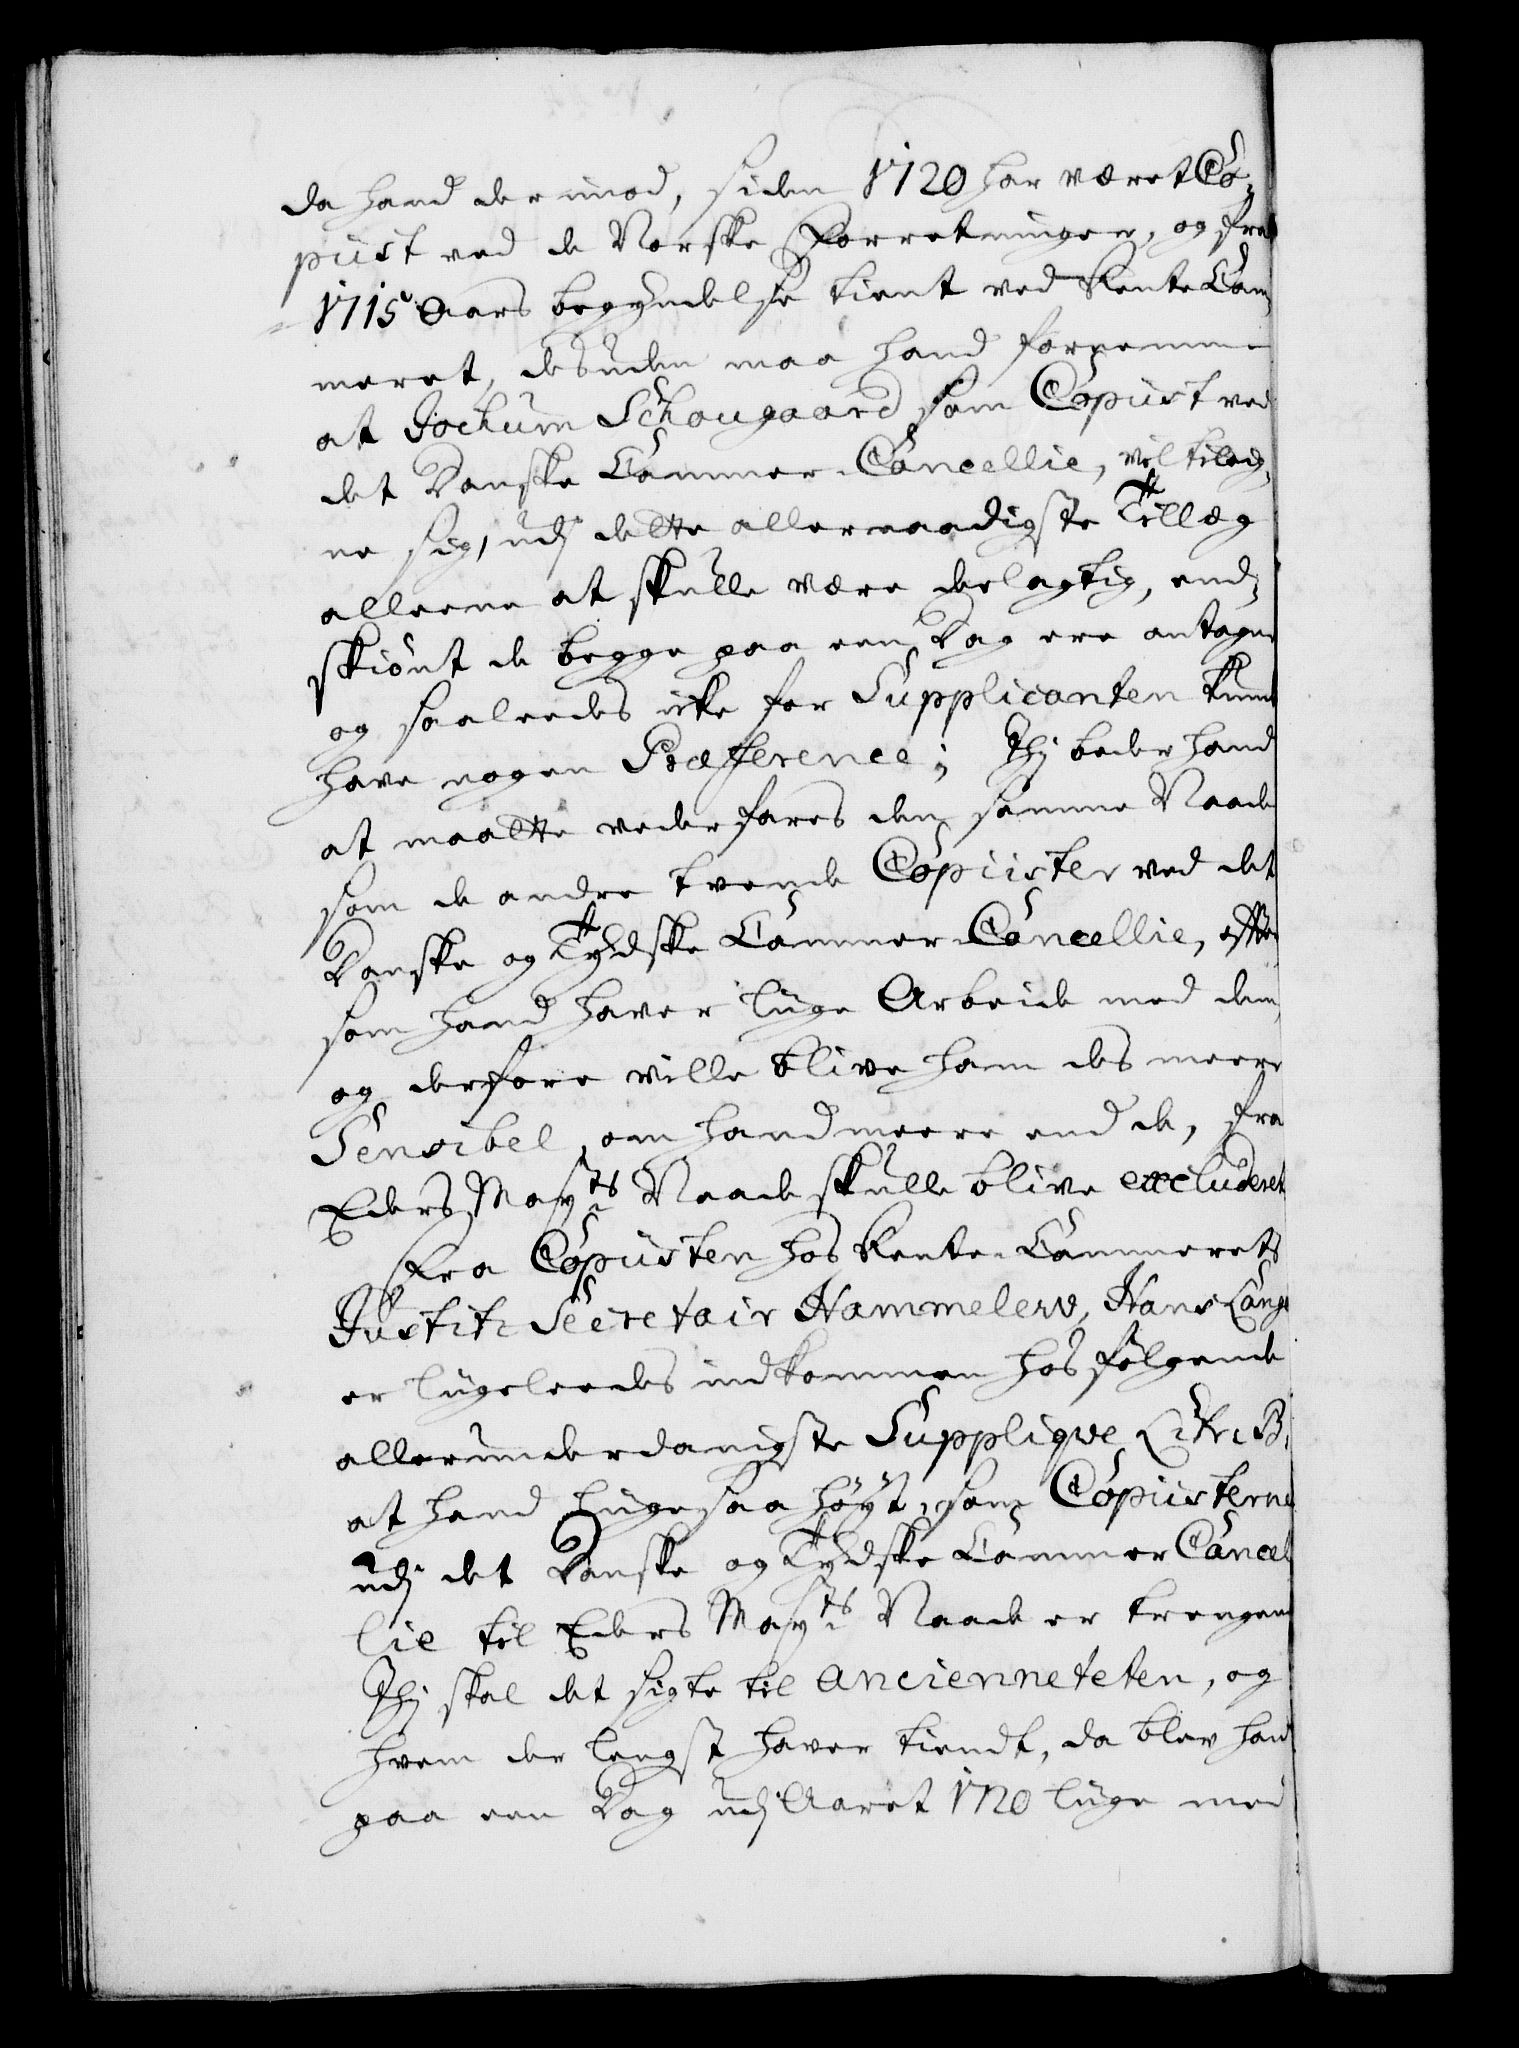 da hand derimod, siden 1720 har været Co-
piist ved de Norske Forretninger, og fra
1715 Aars begyndelse tient ved Rente Cam
meret, desuden maa hand fornemme
at Jochum Schougaard som Copiist ved
det Danske Cammer-Cancellie, vil tileg-
ne sig, udj dette allernaadigste Tillæg
alleene at skulle være deelagtig, end-
skiønt de begge paa een Dag ere antagne
og saaleedes icke for Supplicanten kunde
have nogen Præference; Thj beder hand
at maatte vederfares den samme Naade
som de andre tvende Copiister ved det
Danske og Tydske Cammer-Cancellie, efter
som hand haver liige Arbeide med dem,
og derfore ville blive ham des meere
Sensibel, om hand meere end de, fra
Eders Mayts Naade skulle blive excluderet
Fra Copiisten hos Rente-Cammerets
Justitz Secretair Hammeleff, Hans Lange
er liigeleedes indkommen hos følgende
allerunderdanigste Supplique Litr: B.
at hand liigesaa høyt, som Copiisterne
udj det Danske og Tydske Cammer Cancel
lie til Eders Mayts Naade er trengend
Thj skal det sigte til Ancienneteten, og
hvem der lengst haver tiendt, da blev hand
paa een Dag udj Aaret 1720 liige med